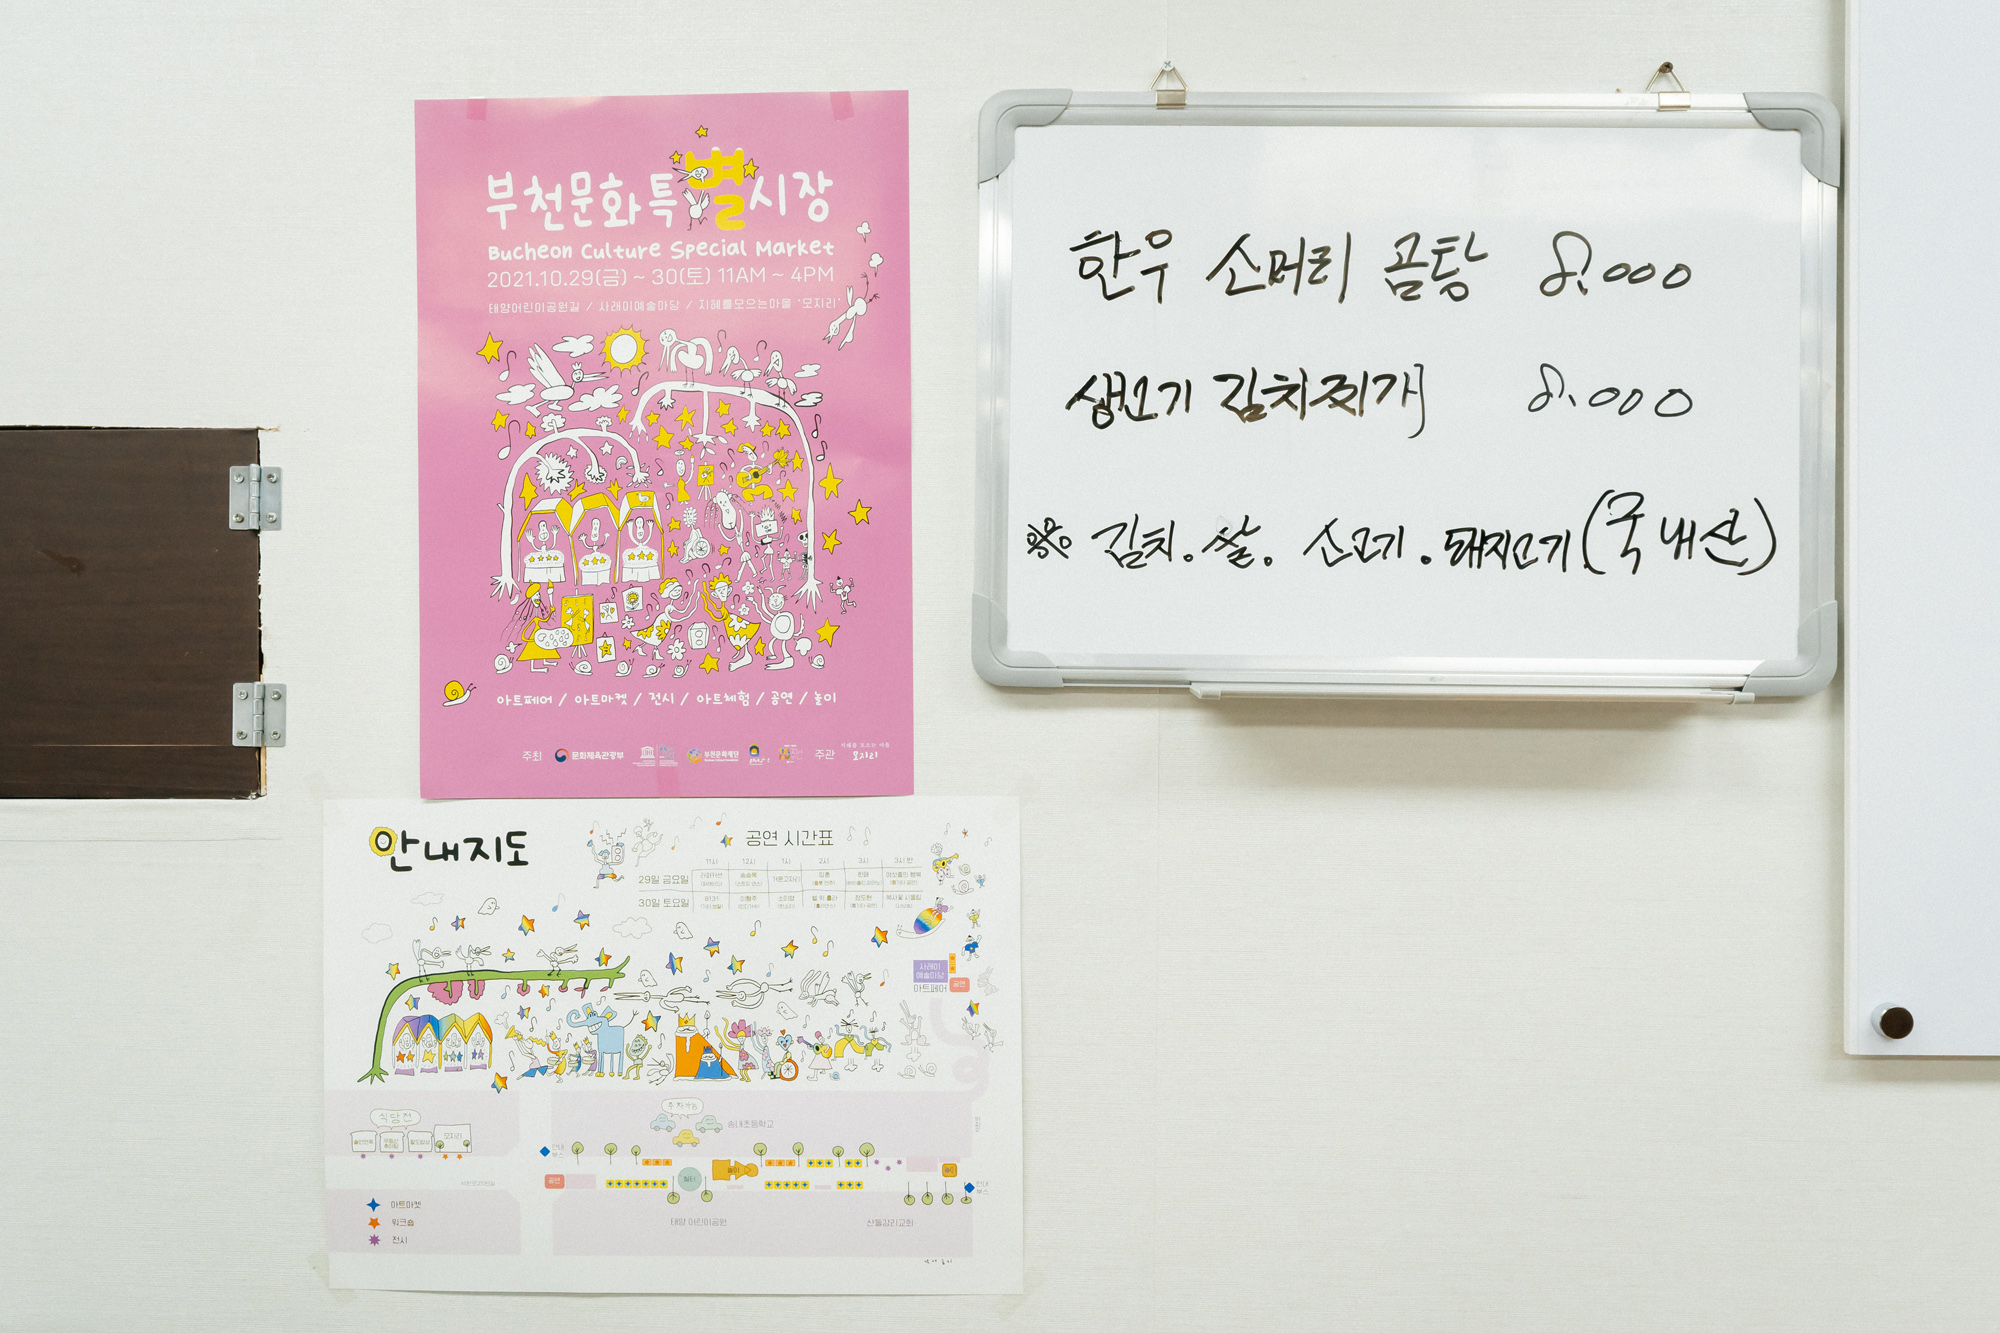 부천문화특별시장
Bucheon Culture Special Market
2021.10.29(금) ~ 30(토) 11AM ~ 4PM
태양어린이공원길 / 사래이예술마당 / 지혜를모으는마을 '모지리'
아트페어 / 아트마켓 / 전시 / 아트체험 / 공연 / 놀이
주최 문화체육관광부 부천문화재단 주관 지혜를 모으는 마을 모지리
한우 소머리 곰탕 8.000
생고기 김치찌개 8.000
※ 김치. 쌀. 소고기. 돼지고기(국내산)
안내지도
공연 시간표
11시 12시 1시 2시 3시 3시 반
29일 금요일
30일 토요일
사래이
예술마당
아트페어 공연
식당전
모지리
주차가능
송내초등학교
공연
놀이
쉼터
아트마켓
워크숍
전시
태양 어린이공원
산돌감리교회